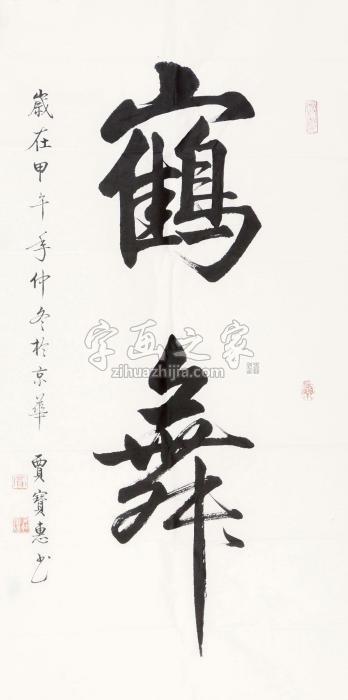 鶴舞
歳在甲午年仲冬於京華 賈寶惠书
字画之家
zihuazhijia.com